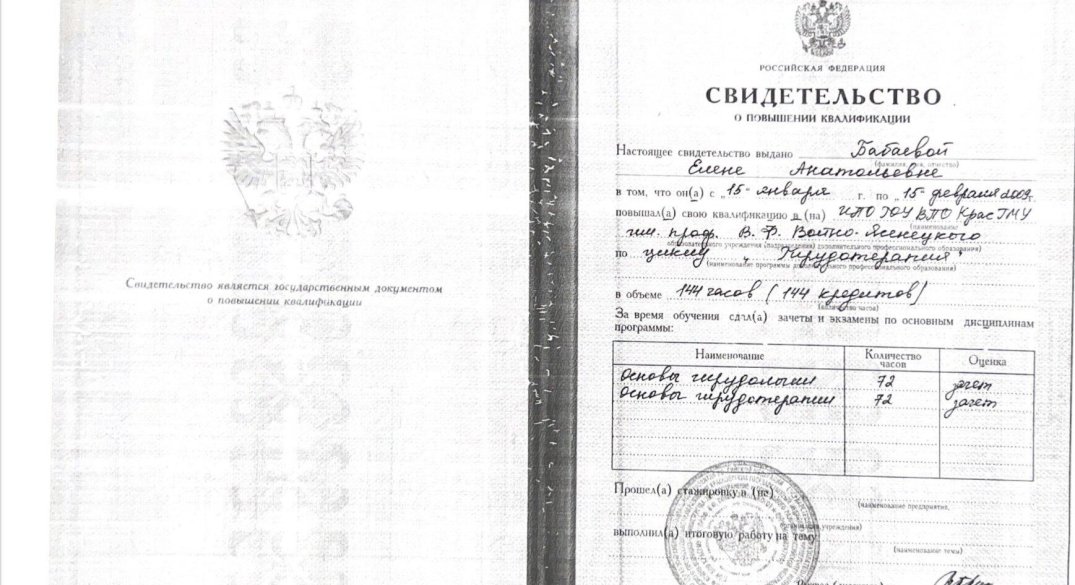 Свидетельство является государственным документом
о повышении квалификации
РОССИЙСКАЯ ФЕДЕРАЦИЯ
СВИДЕТЕЛЬСТВО
О ПОВЫШЕНИИ КВАЛИФИКАЦИИ
Настоящее свидетельство выдано Бабаевой
(фамилия, имя, отчество)
Елене Анатольевне
в том, что он(а) с „15" января г. по „15" февраля 2009г.
повышал(а) свою квалификацию в (на) ИПО ГОУ ВПО КрасГМУ
(наименование
им. проф. В. Ф. Войно-Ясенецкого
образовательного учреждения (подразделения) дополнительного профессионального образования)
по циклу „Гирудотерапия"
(наименование программы дополнительного профессионального образования)
в объеме 144 часов (144 кредитов)
(количество часов)
За время обучения сдал(а) зачеты и экзамены по основным дисциплинам
программы:
Наименование Количество часов Оценка
Основы гирудологии 72 зачет
Основы гирудотерапии 72 зачет
Прошел(а) стажировку в (на)
(наименование предприятия,
учреждения)
выполнил(а) итоговую работу на тему
(наименование темы)